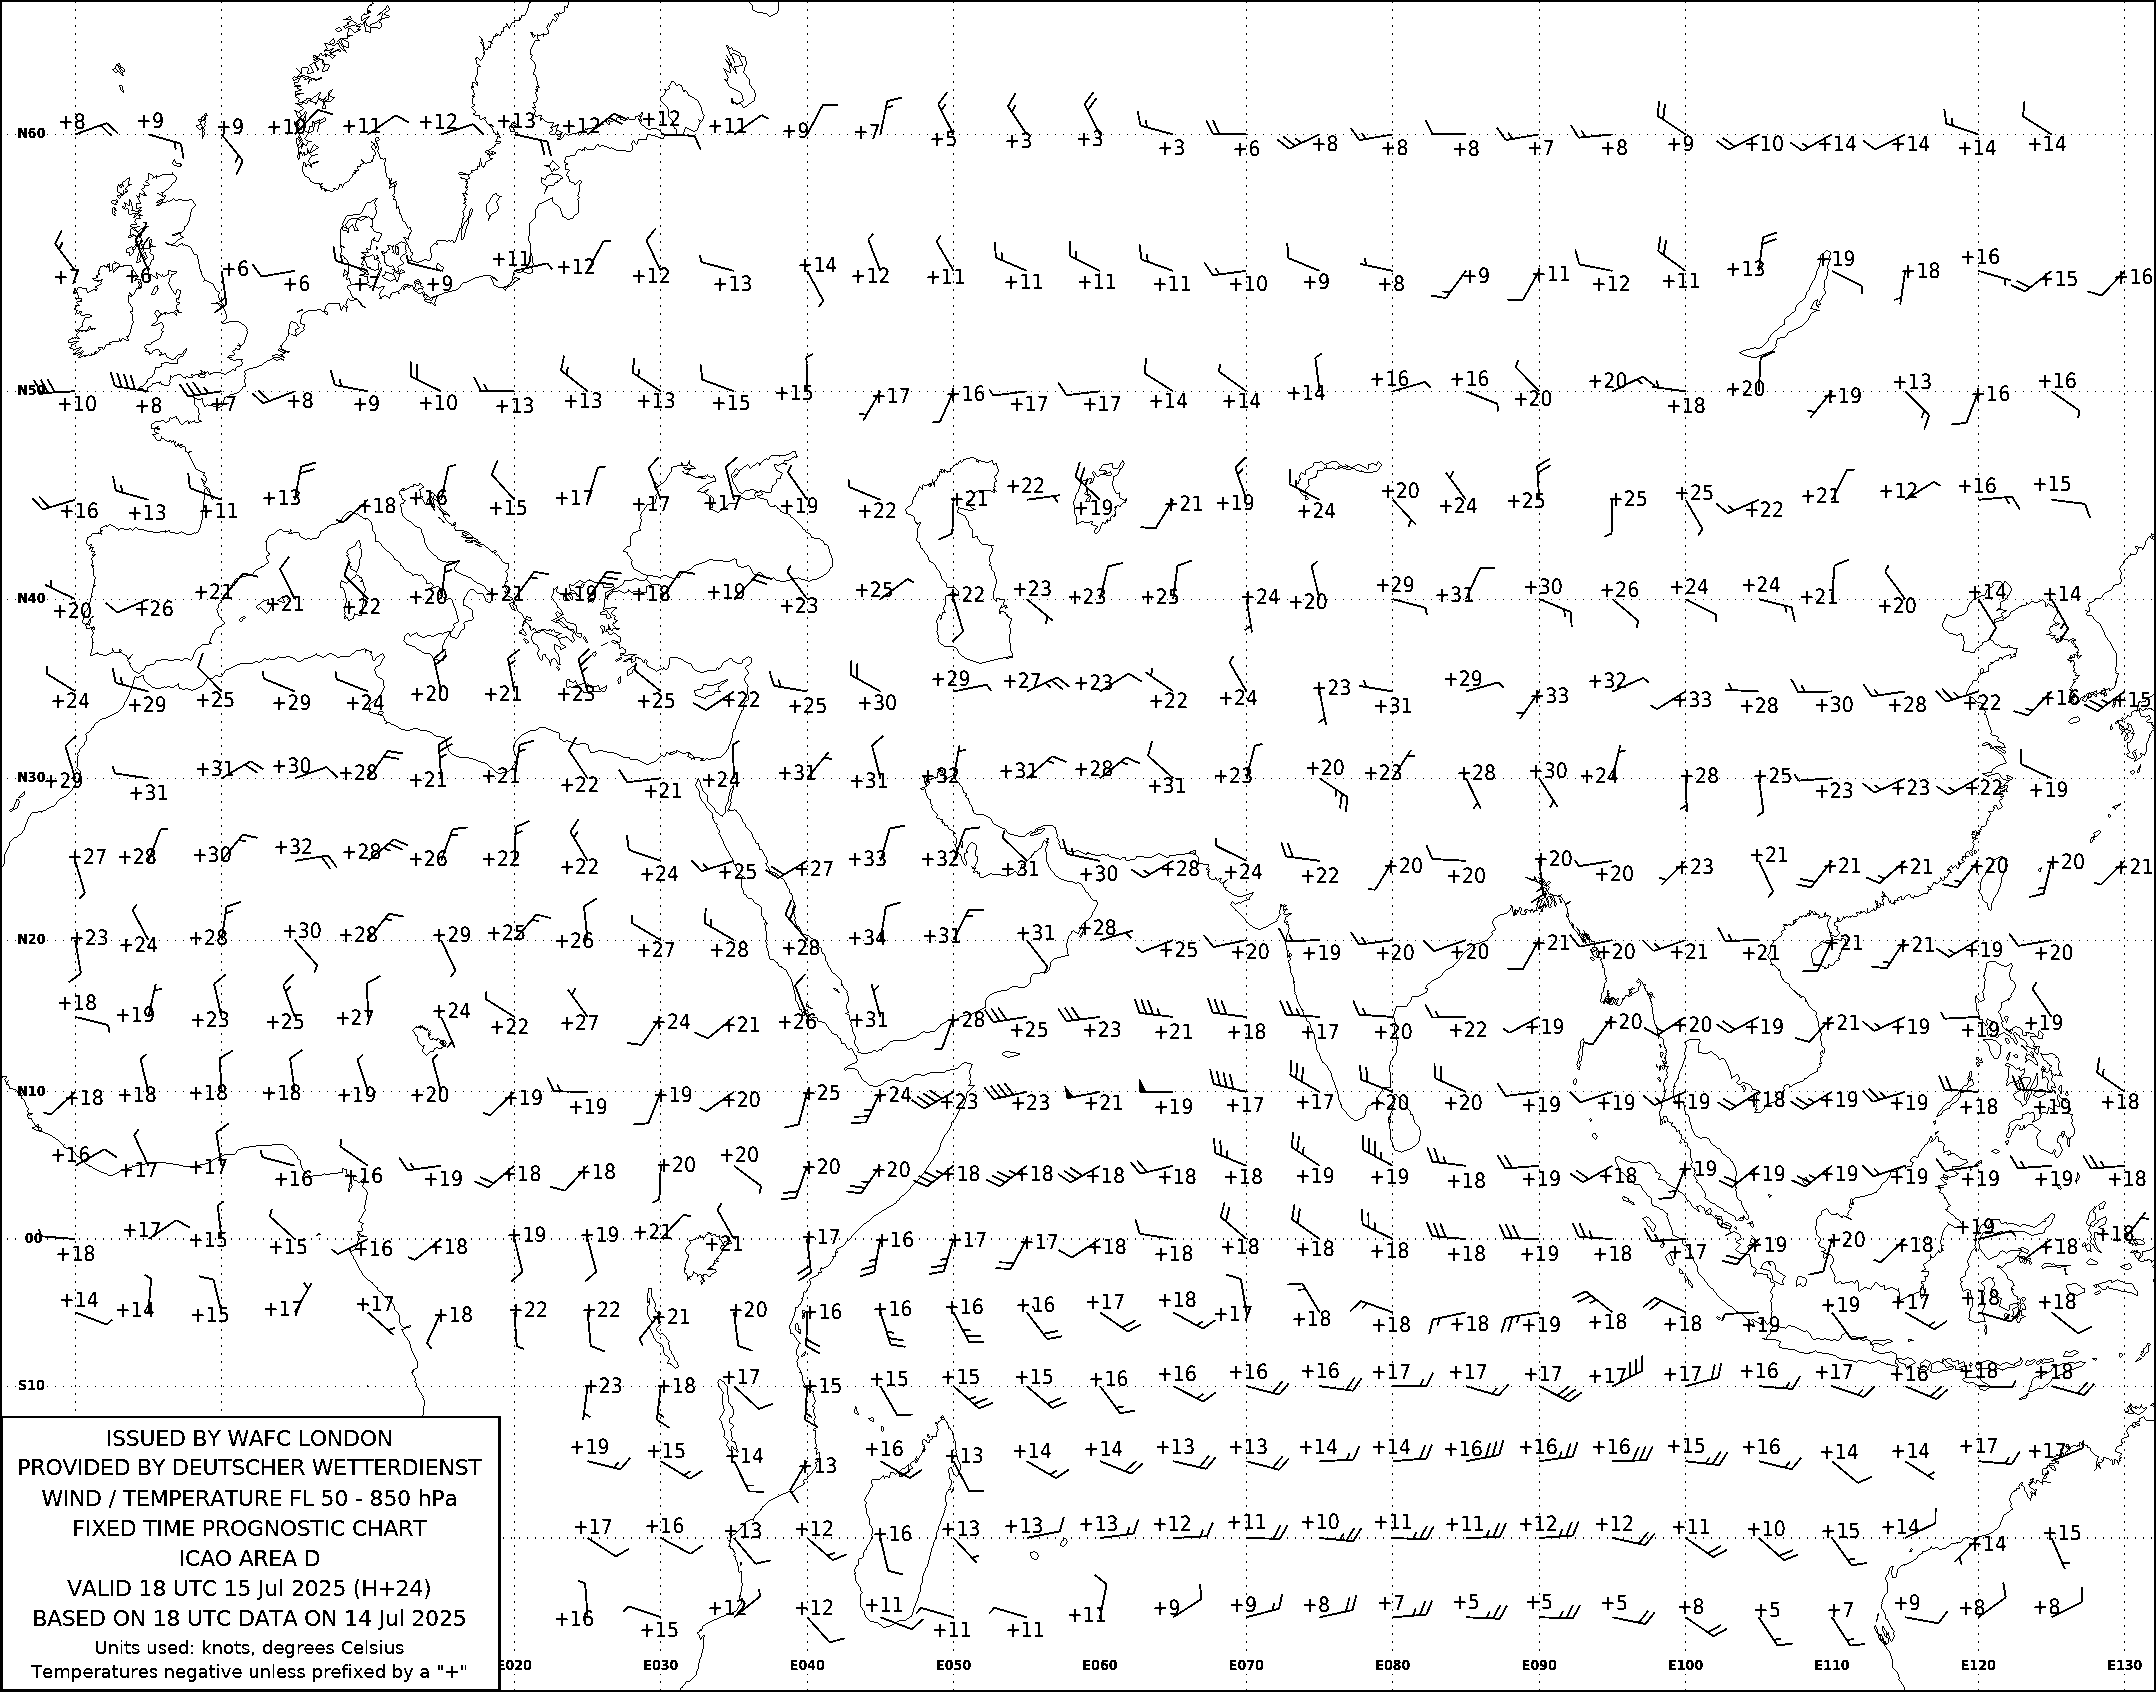 +8 +9 +9 +10 +11 +12 +13 +12 +12 +11 +9 +7 +5 +3 +3 +3 +6 +8 +8 +8 +7 +8 +9 +10 +14 +14 +14 +14
N60
+7 +6 +6 +6 +7 +9 +11 +12 +12 +13 +14 +12 +11 +11 +11 +11 +10 +9 +8 +9 +11 +12 +11 +13 +19 +18 +16 +15 +16
N50
+10 +8 +7 +8 +9 +10 +13 +13 +13 +15 +15 +17 +16 +17 +17 +14 +14 +14 +16 +16 +20 +20 +18 +20 +19 +13 +16 +16
+16 +13 +11 +13 +18 +16 +15 +17 +17 +17 +19 +22 +21 +22 +19 +21 +19 +24 +20 +24 +25 +25 +25 +22 +21 +12 +16 +15
N40
+20 +26 +21 +21 +22 +20 +21 +19 +18 +19 +23 +25 +22 +23 +23 +25 +24 +20 +29 +31 +30 +26 +24 +24 +21 +20 +14 +14
+24 +29 +25 +29 +24 +20 +21 +23 +25 +22 +25 +30 +29 +27 +23 +22 +24 +23 +31 +29 +33 +32 +33 +28 +30 +28 +22 +16 +15
N30
+29 +31 +31 +30 +28 +21 +21 +22 +21 +24 +31 +31 +32 +31 +28 +31 +23 +20 +23 +28 +30 +24 +28 +25 +23 +23 +22 +19
+27 +28 +30 +32 +28 +26 +22 +22 +24 +25 +27 +33 +32 +31 +30 +28 +24 +22 +20 +20 +20 +20 +23 +21 +21 +21 +20 +20 +21
N20
+23 +24 +28 +30 +28 +29 +25 +26 +27 +28 +28 +34 +31 +31 +28 +25 +20 +19 +20 +20 +21 +20 +21 +21 +21 +21 +19 +20
+18 +19 +23 +25 +27 +24 +22 +27 +24 +21 +26 +31 +28 +25 +23 +21 +18 +17 +20 +22 +19 +20 +20 +19 +21 +19 +19 +19
N10
+18 +18 +18 +18 +19 +20 +19 +19 +19 +20 +25 +24 +23 +23 +21 +19 +17 +17 +20 +20 +19 +19 +19 +18 +19 +19 +18 +19 +18
+16 +17 +17 +16 +16 +19 +18 +18 +20 +20 +20 +20 +18 +18 +18 +18 +18 +19 +19 +18 +19 +18 +19 +19 +19 +19 +19 +19 +18
00
+18 +17 +15 +15 +16 +18 +19 +19 +21 +21 +17 +16 +17 +17 +18 +18 +18 +18 +18 +18 +19 +18 +17 +19 +20 +18 +19 +18 +18
+14 +14 +15 +17 +17 +18 +22 +22 +21 +20 +16 +16 +16 +16 +17 +18 +17 +18 +18 +18 +19 +18 +18 +19 +19 +17 +18 +18
S10
+23 +18 +17 +15 +15 +15 +15 +16 +16 +16 +16 +17 +17 +17 +17 +17 +16 +17 +16 +18 +18
+19 +15 +14 +13 +16 +13 +14 +14 +13 +13 +14 +14 +16 +16 +16 +15 +16 +14 +14 +17 +17
+17 +16 +13 +12 +16 +13 +13 +13 +12 +11 +10 +11 +11 +12 +12 +11 +10 +15 +14 +14 +15
+16 +15 +12 +12 +11 +11 +11 +11 +9 +9 +8 +7 +5 +5 +5 +8 +5 +7 +9 +8 +8
E020 E030 E040 E050 E060 E070 E080 E090 E100 E110 E120 E130
ISSUED BY WAFC LONDON
PROVIDED BY DEUTSCHER WETTERDIENST
WIND / TEMPERATURE FL 50 - 850 hPa
FIXED TIME PROGNOSTIC CHART
ICAO AREA D
VALID 18 UTC 15 Jul 2025 (H+24)
BASED ON 18 UTC DATA ON 14 Jul 2025
Units used: knots, degrees Celsius
Temperatures negative unless prefixed by a "+"